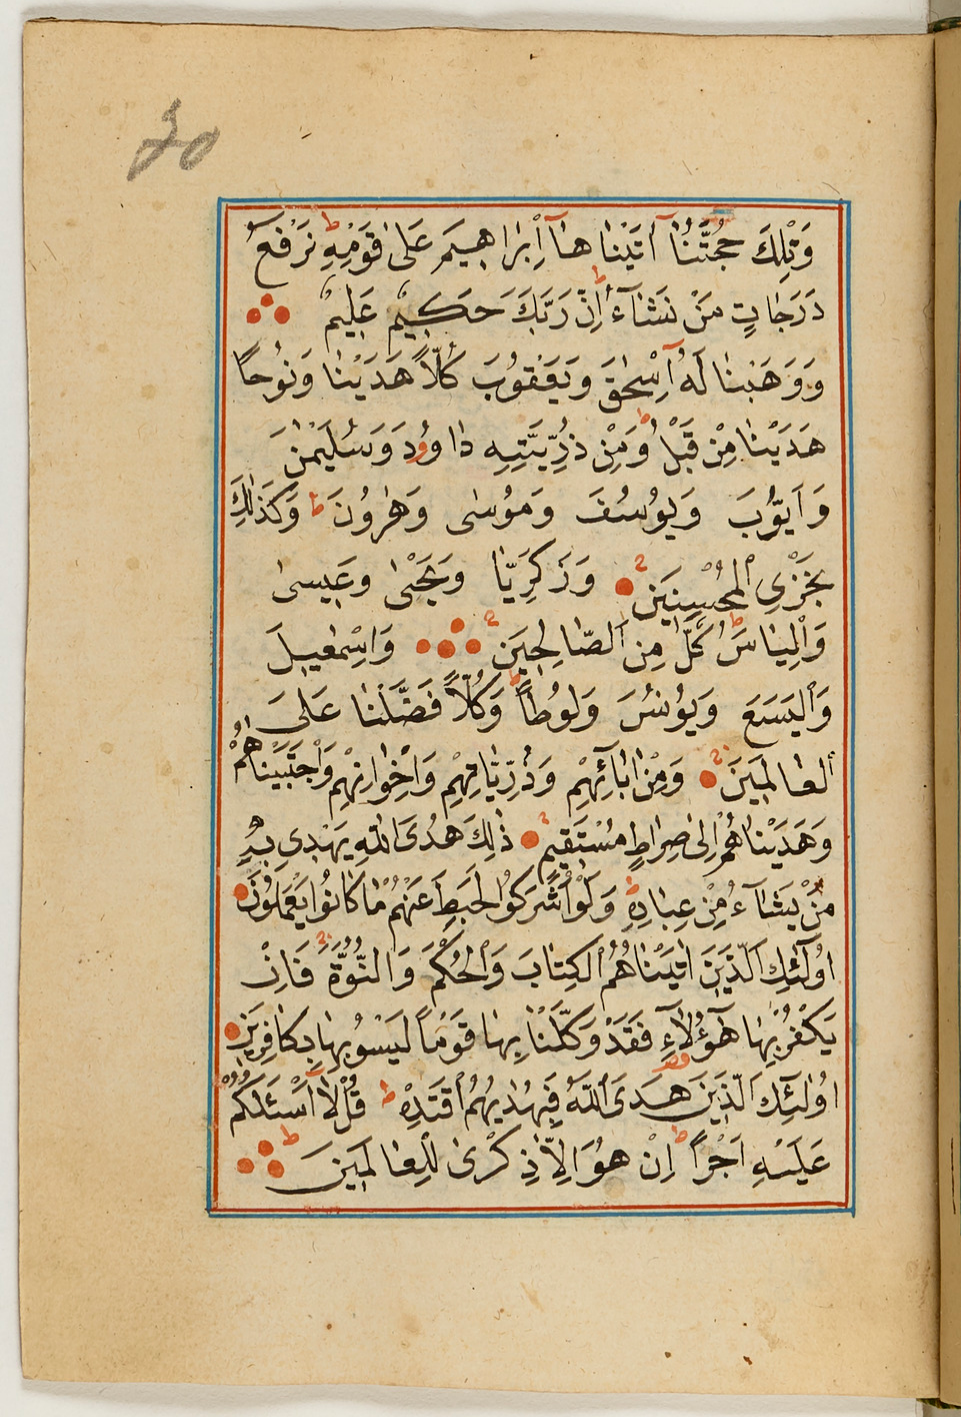 وَتِلْكَ حُجَّتُنَآ اٰتَيْنَاهَآ اِبْرَاهِيمَ عَلٰى قَوْمِهٖ ط نَرْفَعُ
دَرَجَاتٍ مَنْ نَشَآءُ ط اِنَّ رَبَّكَ حَكِيمٌ عَلِيمٌ
وَوَهَبْنَا لَهُٓ اِسْحٰقَ وَيَعْقُوبَ كُلّاً هَدَيْنَا وَنُوحاً
هَدَيْنَا مِنْ قَبْلُ ط وَمِنْ ذُرِّيَّتِهِ دَاوُودَ وَسُلَيْمٰنَ
وَاَيُّوبَ وَيُوسُفَ وَمُوسٰى وَهٰرُونَ ط وَكَذٰلِكَ
نَجْزِى الْمُحْسِنِينَ وَزَكَرِيَّا وَيَحْيٰى وَعِيسٰى
وَاِلْيَاسَ ط كُلٌّ مِنَ الصَّالِحِينَ وَاِسْمٰعِيلَ
وَالْيَسَعَ وَيُونُسَ وَلُوطاً ط وَكُلّاً فَضَّلْنَا عَلَى
الْعَالَمِينَ وَمِنْ اٰبَآئِهِمْ وَذُرِّيَّاتِهِمْ وَاِخْوَانِهِمْ وَاجْتَبَيْنَاهُمْ
وَهَدَيْنَاهُمْ اِلٰى صِرَاطٍ مُسْتَقِيمٍ ذٰلِكَ هُدَى اللّٰهِ يَهْدِى بِهٖ
مَنْ يَشَآءُ مِنْ عِبَادِهٖ ط وَلَوْ اَشْرَكُوا لَحَبِطَ عَنْهُمْ مَا كَانُوا يَعْمَلُونَ
اُولٰٓئِكَ الَّذِينَ اٰتَيْنَاهُمُ الْكِتَابَ وَالْحُكْمَ وَالنُّبُوَّةَ ج فَاِنْ
يَكْفُرْ بِهَا هٰٓؤُلَآءِ فَقَدْ وَكَّلْنَا بِهَا قَوْماً لَيْسُوا بِهَا بِكَافِرِينَ
اُولٰٓئِكَ الَّذِينَ هَدَى اللّٰهُ فَبِهُدٰيهُمُ اقْتَدِهْ ط قُلْ لَٓا اَسْئَلُكُمْ
عَلَيْهِ اَجْراً ط اِنْ هُوَ اِلَّا ذِكْرٰى لِلْعَالَمِينَ